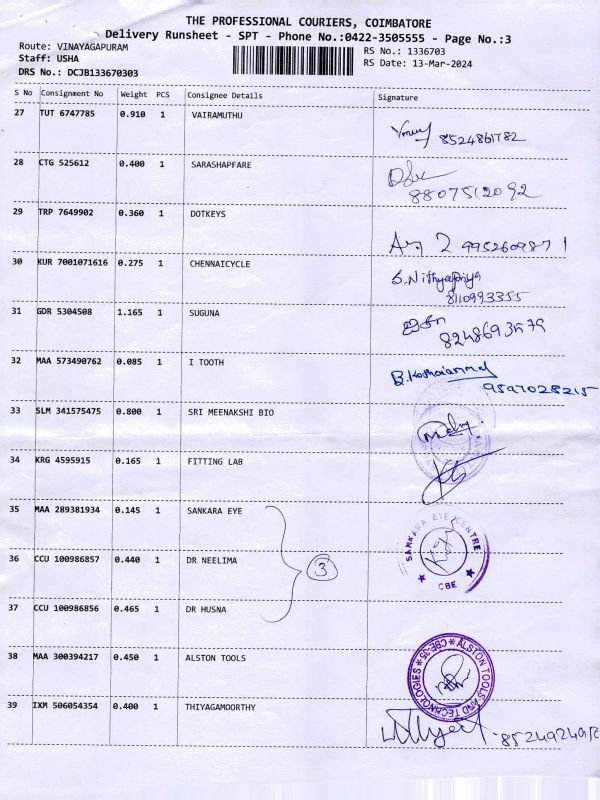 THE PROFESSIONAL COURIERS, COIMBATORE
Delivery Runsheet - SPT - Phone No.:0422-3505555 - Page No.:3
Route: VINAYAGAPURAM
RS No.: 1336703
Staff: USHA
RS Date: 13-Mar-2024
DRS No.: DCJB133670303
S No Consignment No Weight PCS Consignee Details Signature
27 TUT 6747785 0.910 1 VAIRAMUTHU
8524861782
28 CTG 525612 0.400 1 SARASHAPFARE
8807512092
29 TRP 7649902 0.360 1 DOTKEYS
9952609871
30 KUR 7001071616 0.275 1 CHENNAICYCLE
S.Nithyapriya
8110993355
31 GDR 5304508 1.165 1 SUGUNA
32 MAA 573490762 0.085 1 I TOOTH
9597028215
33 SLM 341575475 0.800 1 SRI MEENAKSHI BIO
34 KRG 4595915 0.165 1 FITTING LAB
35 MAA 289381934 0.145 1 SANKARA EYE
SANKARA EYE CENTRE
CBE
36 CCU 100986857 0.440 1 DR NEELIMA
3
37 CCU 100986856 0.465 1 DR HUSNA
38 MAA 300394217 0.450 1 ALSTON TOOLS
ALSTON TOOLS AND TECHNOLOGIES CBE-35
39 IXM 506054354 0.400 1 THIYAGAMOORTHY